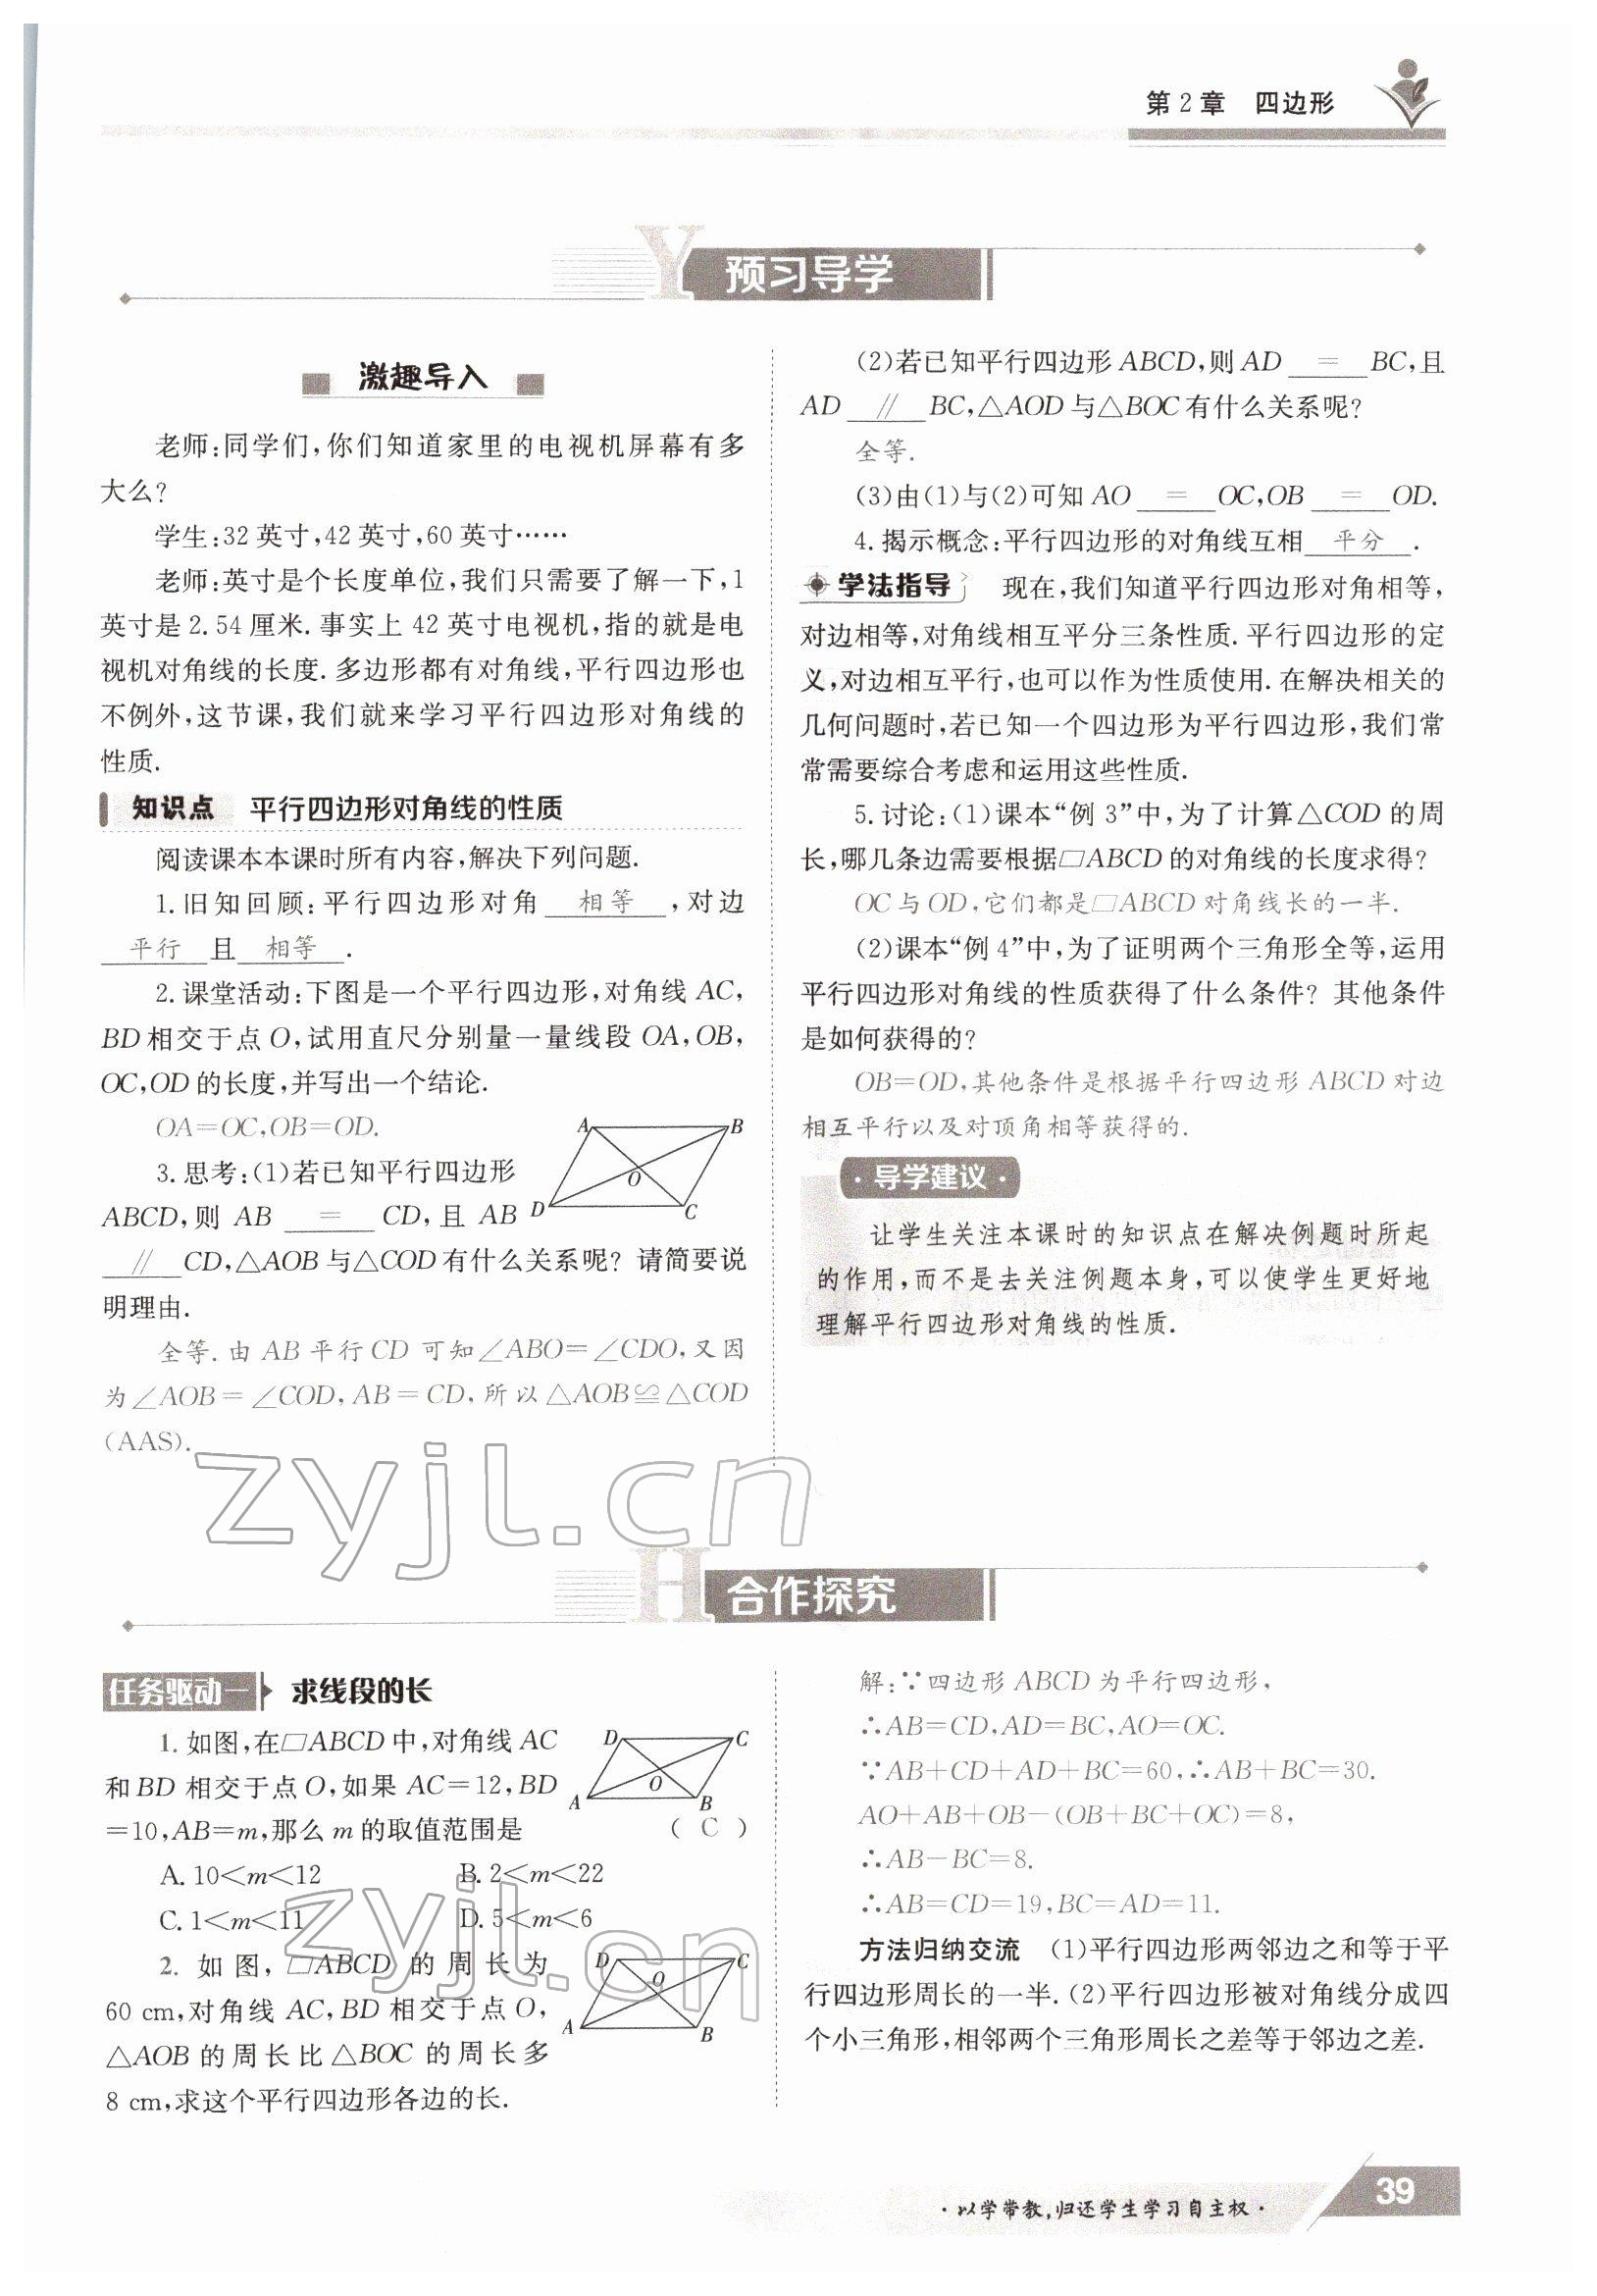 第 2 章　四边形
预习导学
激趣导入
老师:同学们,你们知道家里的电视机屏幕有多
大么?
学生:32 英寸,42 英寸,60 英寸……
老师:英寸是个长度单位,我们只需要了解一下,1
英寸是 2.54 厘米. 事实上 42 英寸电视机,指的就是电
视机对角线的长度. 多边形都有对角线,平行四边形也
不例外,这节课,我们就来学习平行四边形对角线的
性质.
知识点　平行四边形对角线的性质
阅读课本本课时所有内容,解决下列问题.
1. 旧知回顾:平行四边形对角 相等 ,对边
平行 且 相等 .
2. 课堂活动:下图是一个平行四边形,对角线 AC,
BD 相交于点 O,试用直尺分别量一量线段 OA,OB,
OC,OD 的长度,并写出一个结论.
OA=OC,OB=OD.
3. 思考:(1)若已知平行四边形
ABCD,则 AB = CD,且 AB
∥ CD,△AOB 与△COD 有什么关系呢? 请简要说
明理由.
A B
O
D C
全等. 由 AB 平行 CD 可知∠ABO=∠CDO,又因
为∠AOB=∠COD,AB=CD,所以△AOB≌△COD
(AAS).
(2)若已知平行四边形 ABCD,则 AD = BC,且
AD ∥ BC,△AOD 与△BOC 有什么关系呢?
全等.
(3)由(1)与(2)可知 AO = OC,OB = OD.
4. 揭示概念:平行四边形的对角线互相 平分 .
学法指导　现在,我们知道平行四边形对角相等,
对边相等,对角线相互平分三条性质. 平行四边形的定
义,对边相互平行,也可以作为性质使用. 在解决相关的
几何问题时,若已知一个四边形为平行四边形,我们常
常需要综合考虑和运用这些性质.
5. 讨论:(1)课本“例 3”中,为了计算△COD 的周
长,哪几条边需要根据□ABCD 的对角线的长度求得?
OC 与 OD,它们都是□ABCD 对角线长的一半.
(2)课本“例 4”中,为了证明两个三角形全等,运用
平行四边形对角线的性质获得了什么条件? 其他条件
是如何获得的?
OB=OD,其他条件是根据平行四边形 ABCD 对边
相互平行以及对顶角相等获得的.
·导学建议·
让学生关注本课时的知识点在解决例题时所起
的作用,而不是去关注例题本身,可以使学生更好地
理解平行四边形对角线的性质.
zyjl.cn
合作探究
任务驱动一　求线段的长
1. 如图,在□ABCD 中,对角线 AC
和 BD 相交于点 O,如果 AC=12,BD
=10,AB=m,那么 m 的取值范围是 ( C )
D C
O
A B
A. 10<m<12　B. 2<m<22
C. 1<m<11　D. 5<m<6
2. 如图,□ABCD 的周长为
60 cm,对角线 AC,BD 相交于点 O,
△AOB 的周长比△BOC 的周长多
8 cm,求这个平行四边形各边的长.
D C
O
A B
zyjl.cn
解:∵四边形 ABCD 为平行四边形,
∴AB=CD,AD=BC,AO=OC.
∵AB+CD+AD+BC=60,∴AB+BC=30.
AO+AB+OB-(OB+BC+OC)=8,
∴AB-BC=8.
∴AB=CD=19,BC=AD=11.
方法归纳交流　(1)平行四边形两邻边之和等于平
行四边形周长的一半. (2)平行四边形被对角线分成四
个小三角形,相邻两个三角形周长之差等于邻边之差.
·以学带教,归还学生学习自主权·
39